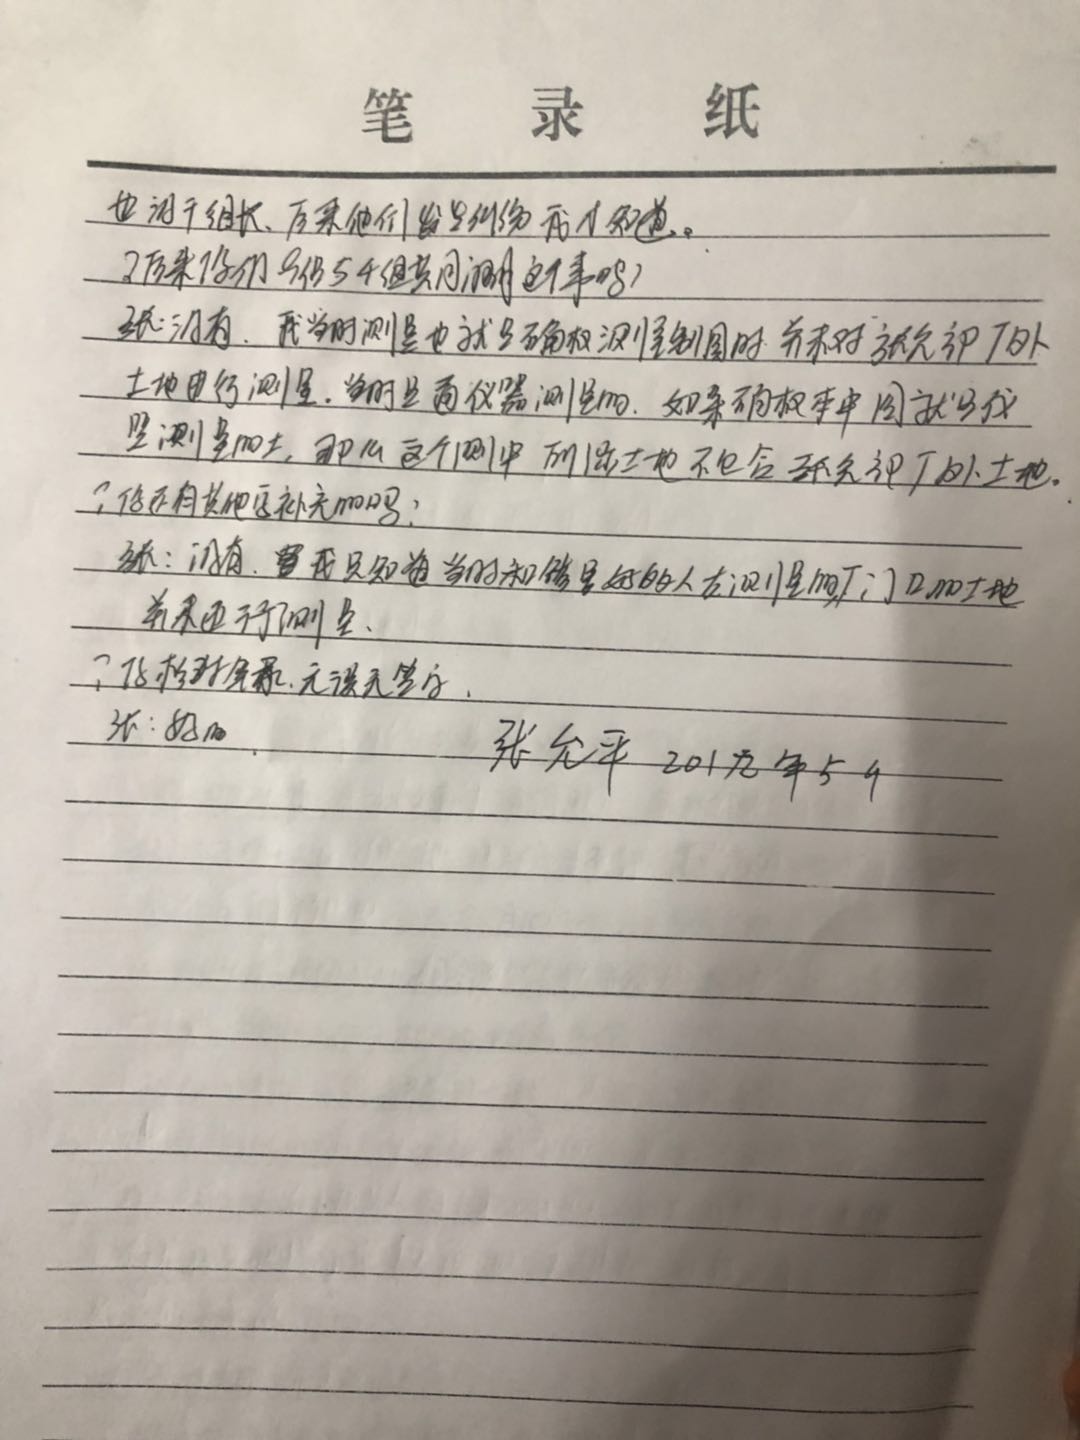 笔录纸
也询于组长、后来他们发生纠纷我才知道。
?后来你们另份54组共同测量这个事吗?
张:没有、我当时测量也就是在确权测量制图时并未对张允部厂外
土地进行测量.当时是用仪器测量的.如果确权本中图就是我
测量的土,那么这个测中所涉土地不包含张允部厂外土地。
?你还有其他要补充的吗?
张:没有.我只知道当时和邻里的人去测量的,厂门口的土地
并未进行测量.
?你核对笔录.无误无签字.
张:好的.
张允平 201九年5月